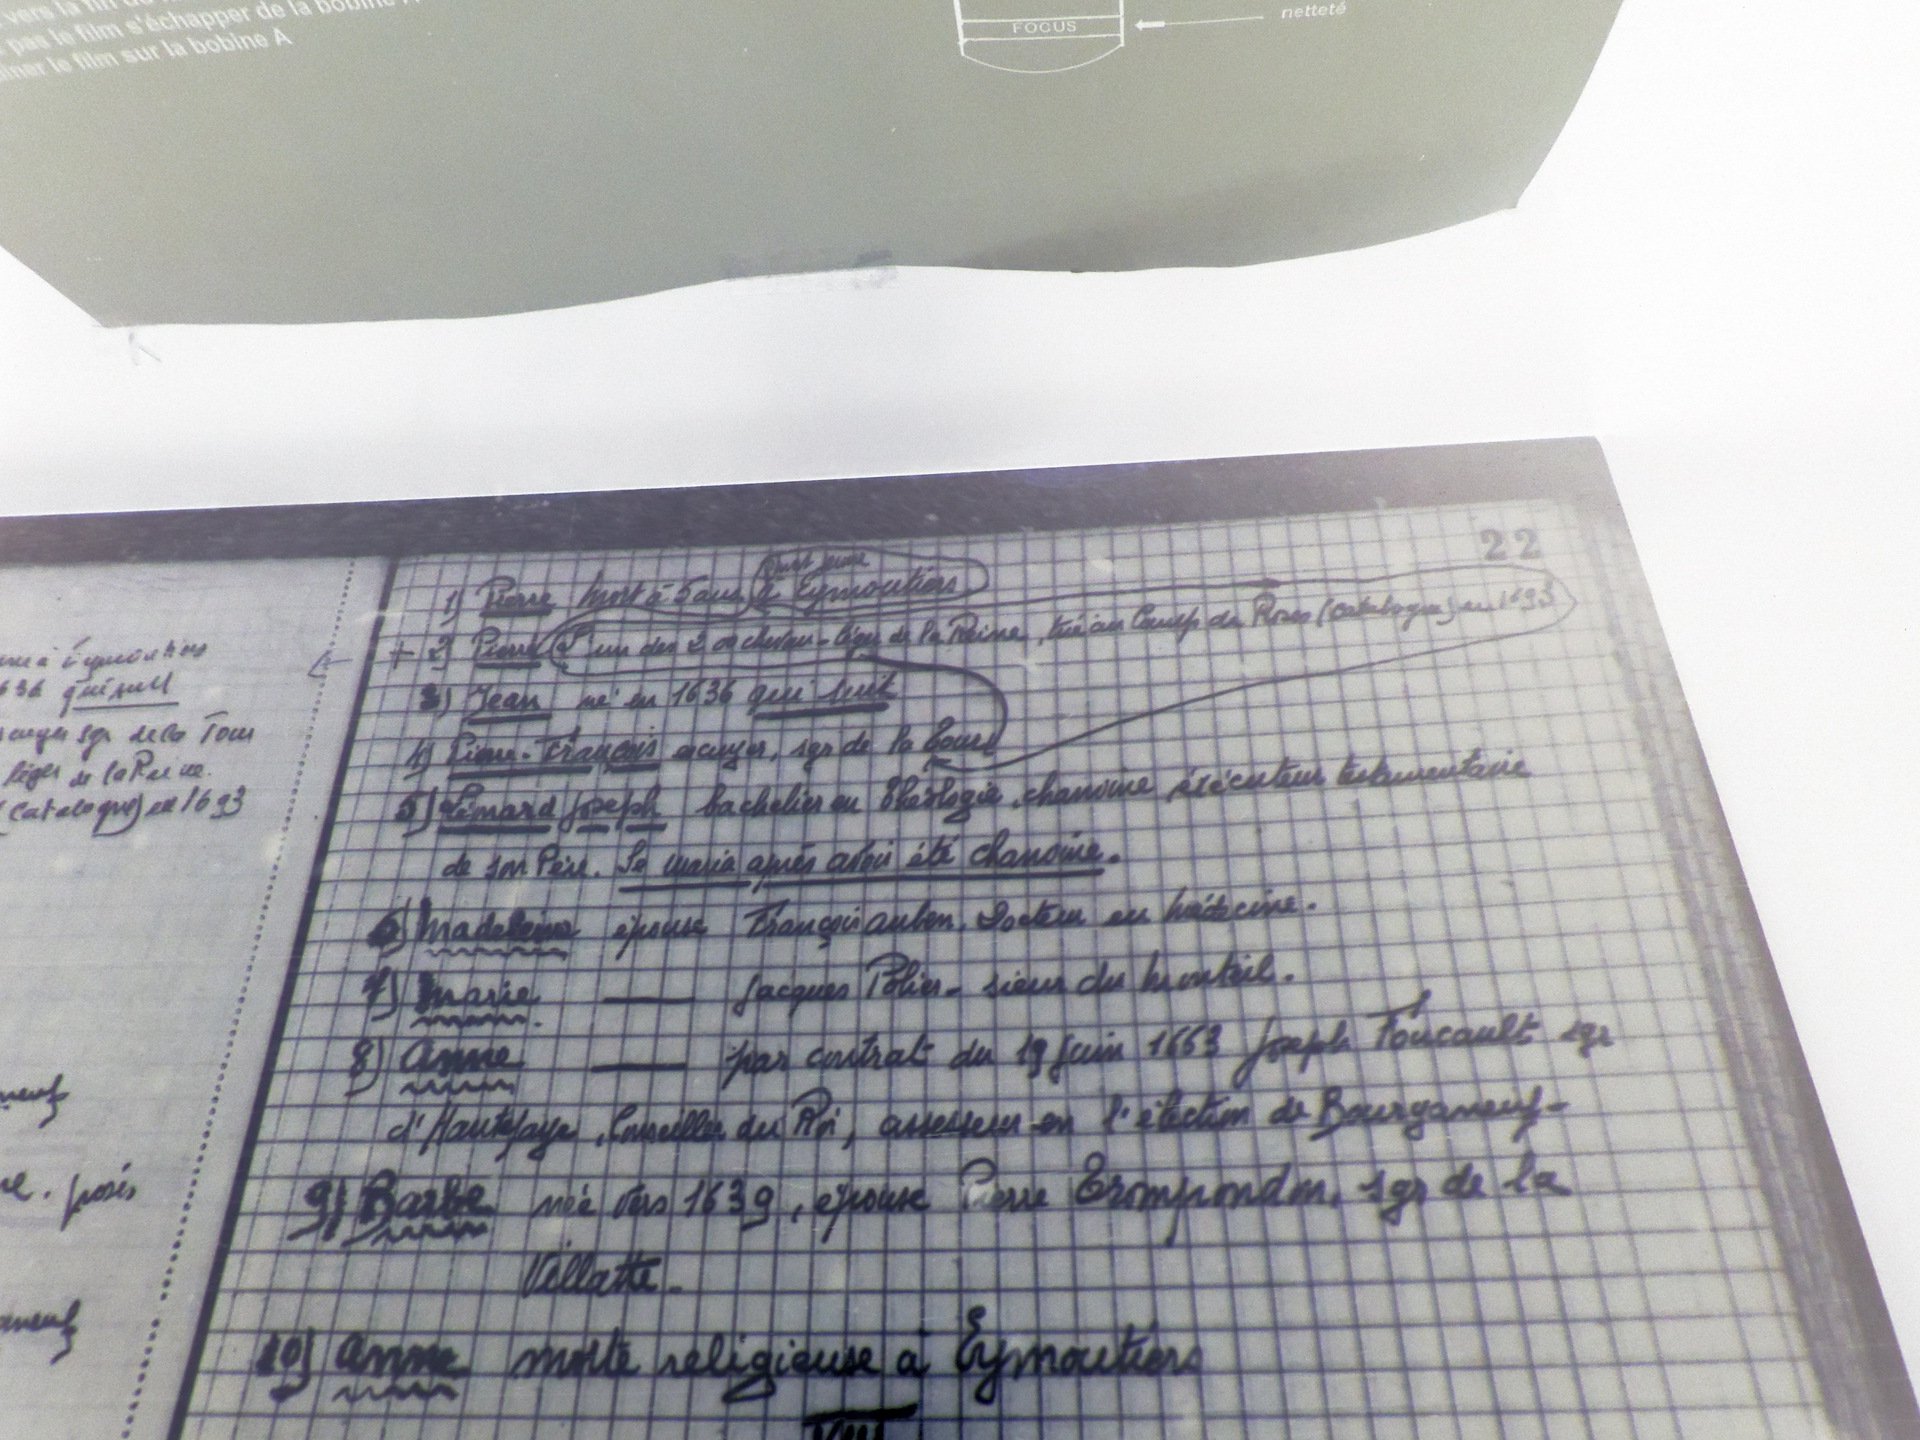 vers la fin du
pas le film s'échapper de la bobine A
iner le film sur la bobine A
FOCUS
netteté
22
1) Pierre mort à 5 ans à Eymoutiers
+ 2) Pierre L'un des 200 chevau-légers de la Reine, tué au Camp de Roses (Catalogne) en 1693
3) Jean né en 1636 qui suit
4) Pierre-François écuyer, sgr de la Tour
5) Léonard Joseph bachelier en théologie, chanoine, exécuteur testamentaire
de son Père. Se maria après avoir été chanoine.
6) Madeleine épouse François Docteur en médecine.
7) Marie —— Jacques sieur du Monteil.
8) Anne —— par contrat du 19 juin 1663 Joseph Foucault sgr
d'Hautefaye, Conseiller du Roi, assesseur en l'élection de Bourganeuf-
9) Barbe née vers 1639, épouse Pierre Trompondon, sgr de la
Villatte.
10) Anne morte religieuse à Eymoutiers
VIII
à Eymoutiers
636 qui suit
sgr de la Tour
léger de la Reine.
(Catalogne) en 1693